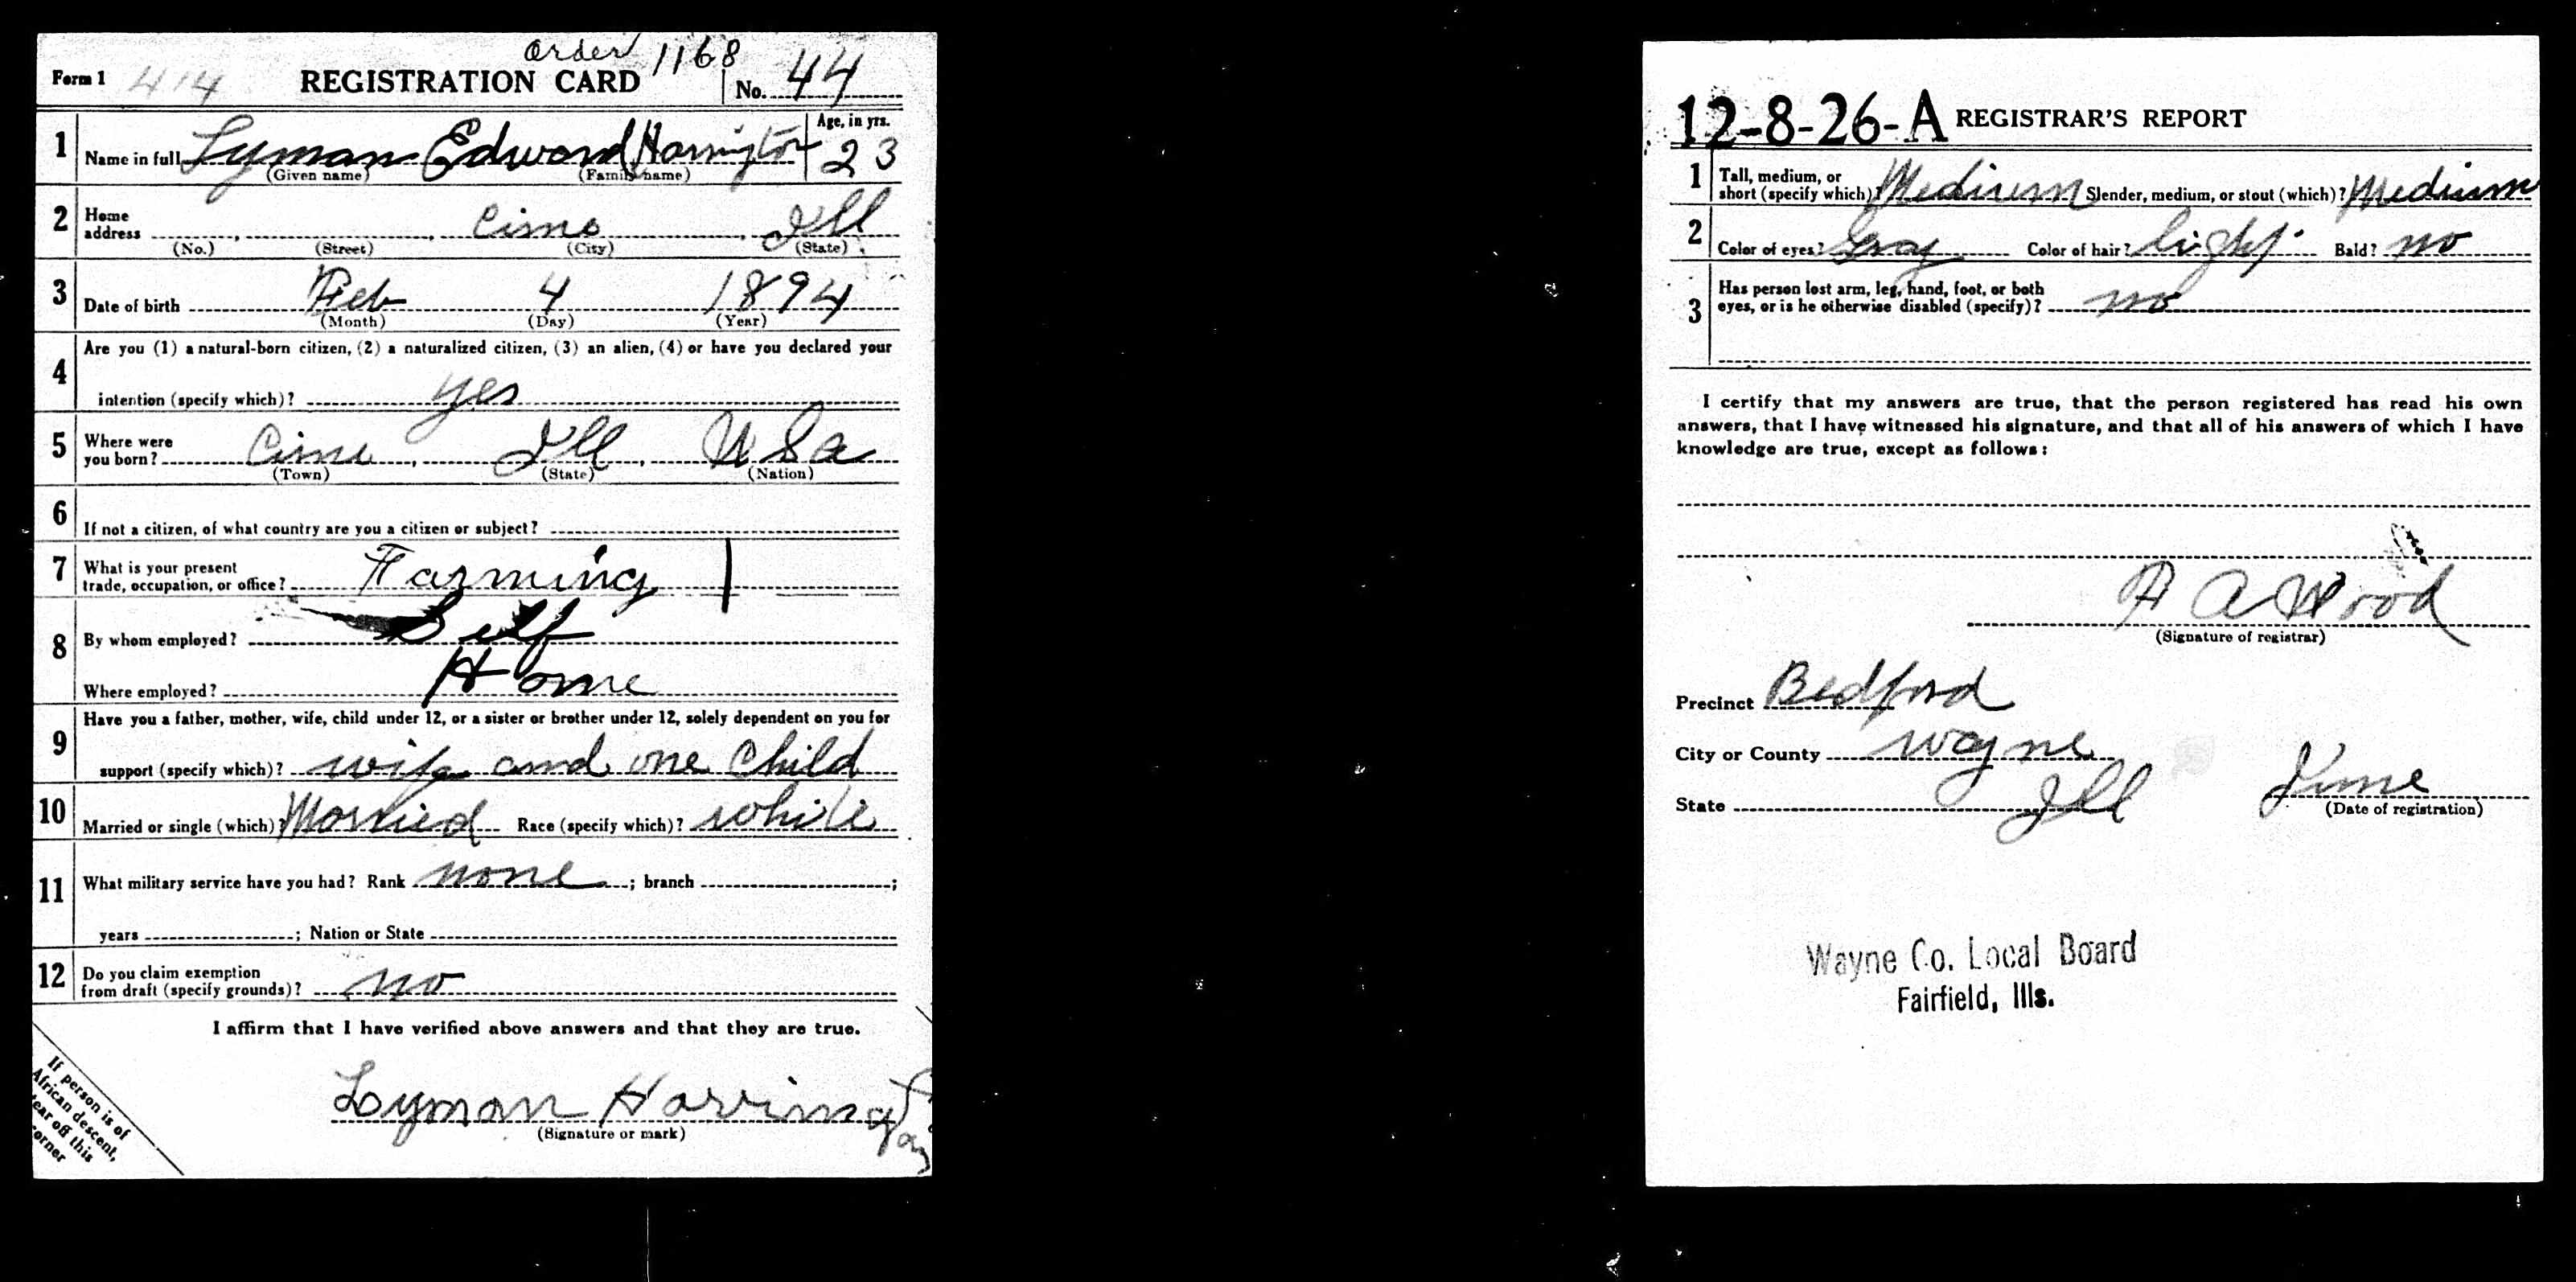 order 1168
Form 1 414 REGISTRATION CARD No. 44
1 Name in full Lyman Edward Harrington Age, in yrs. 23
(Given name) (Family name)
2 Home address Cisne Ill
(No.) (Street) (City) (State)
3 Date of birth Feb 4 1894
(Month) (Day) (Year)
4 Are you (1) a natural-born citizen, (2) a naturalized citizen, (3) an alien, (4) or have you declared your
intention (specify which)? yes
5 Where were you born? Cisne Ill U S a
(Town) (State) (Nation)
6 If not a citizen, of what country are you a citizen or subject?
7 What is your present
trade, occupation, or office? Farming
8 By whom employed? Self
Where employed? Home
9 Have you a father, mother, wife, child under 12, or a sister or brother under 12, solely dependent on you for
support (specify which)? wife and one Child
10 Married or single (which)? Married Race (specify which)? white
11 What military service have you had? Rank none ; branch ;
years ; Nation or State
12 Do you claim exemption
from draft (specify grounds)? no
I affirm that I have verified above answers and that they are true.
Lyman Harrington
(Signature or mark)
If person is of
African descent,
tear off this
corner
12-8-26-A REGISTRAR'S REPORT
1 Tall, medium, or
short (specify which)? Medium Slender, medium, or stout (which)? Medium
2 Color of eyes? Gray Color of hair? light Bald? no
3 Has person lost arm, leg, hand, foot, or both
eyes, or is he otherwise disabled (specify)? no
I certify that my answers are true, that the person registered has read his own
answers, that I have witnessed his signature, and that all of his answers of which I have
knowledge are true, except as follows:
A Wood
(Signature of registrar)
Precinct Bedford
City or County Wayne
State Ill June
(Date of registration)
Wayne Co. Local Board
Fairfield, Ills.